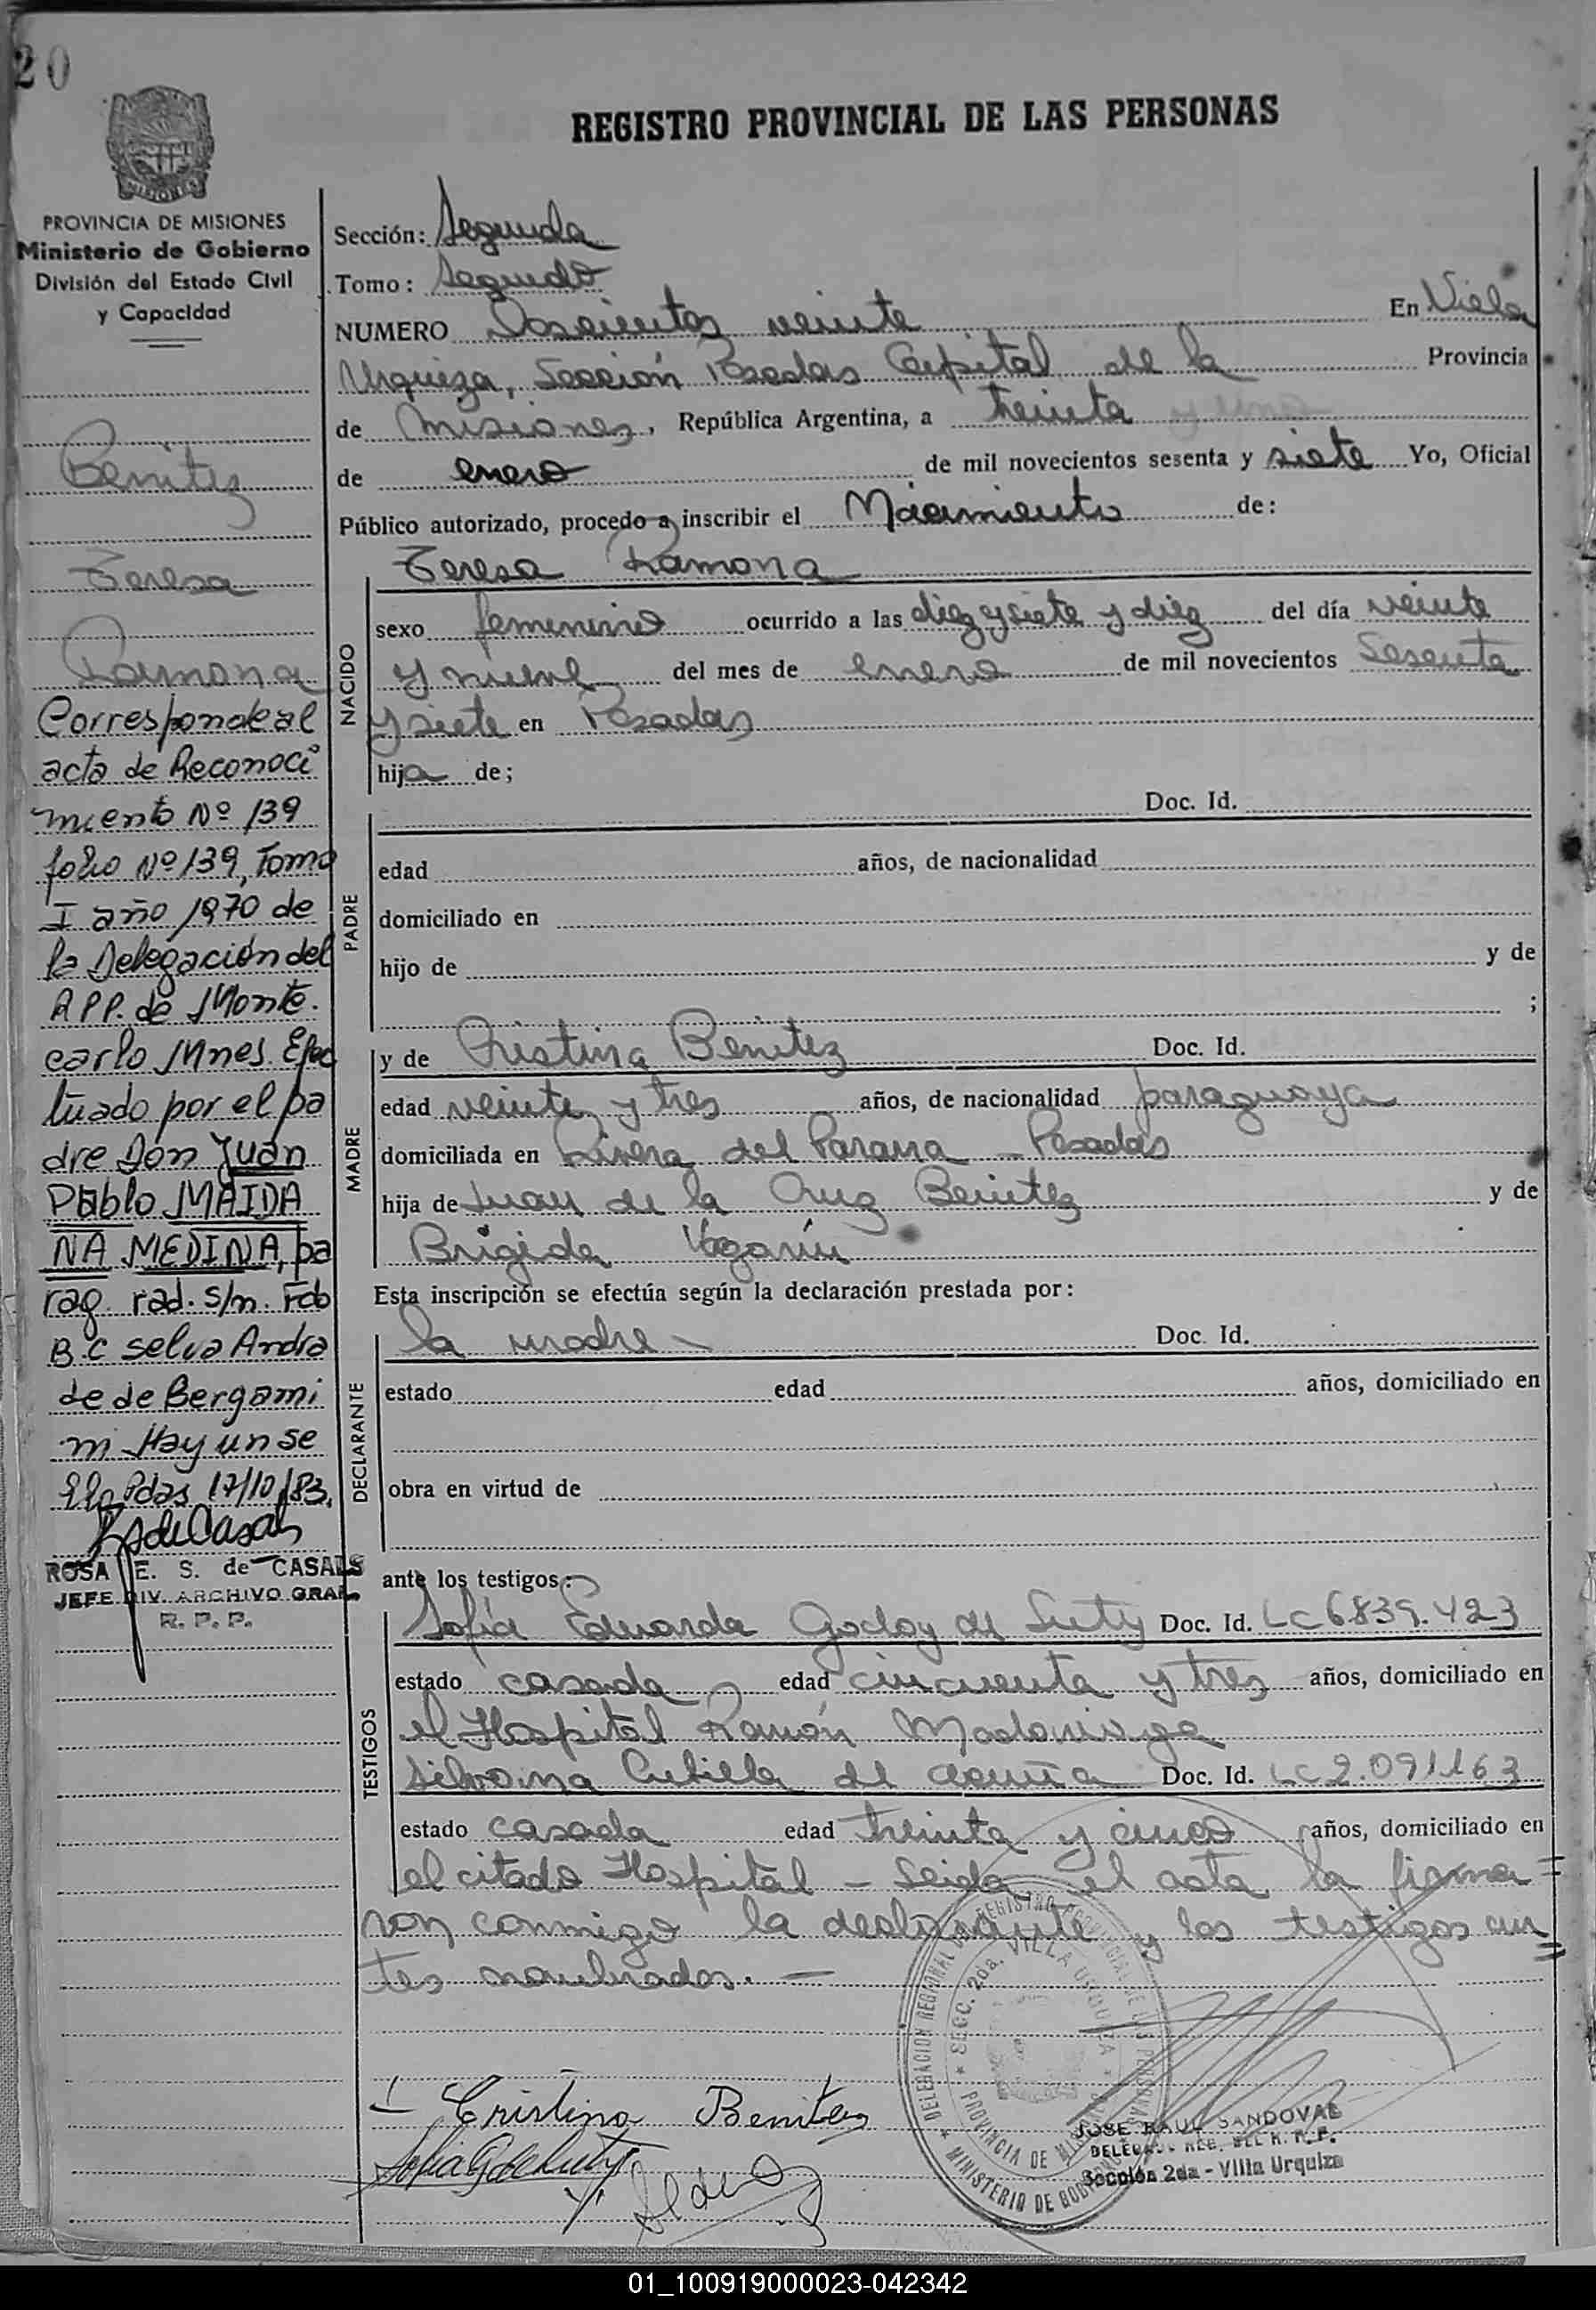 20
REGISTRO PROVINCIAL DE LAS PERSONAS
MISIONES
PROVINCIA DE MISIONES
Ministerio de Gobierno
División del Estado Civil
y Capacidad
Benitez
Teresa
Ramona
Corresponde al
acta de Reconoci
miento Nº 139
folio Nº 139, Tomo
I año 1970 de
la Delegación del
R P P. de Monte.
carlo Mnes. Efec
tuado por el pa
dre Don Juan
Pablo MAIDA
NA MEDINA, pa
rag. rad. s/n. Fdo
B. C Selva Andra
de de Bergami
ni Hay un se
llo Pdas 17/10/83.
ROSA E. S. de CASALS
JEFE DIV. ARCHIVO GRAL.
R. P. P.
Sección: Segunda
Tomo: Segundo
NUMERO Doscientos veinte En Villa
Urquiza, Sección Posadas Capital de la Provincia
de Misiones, República Argentina, a treinta
de enero de mil novecientos sesenta y siete Yo, Oficial
Público autorizado, procedo a inscribir el Nacimiento de:
Teresa Ramona
NACIDO
sexo femenino ocurrido a las diez y siete y diez del día veinte
y nueve del mes de enero de mil novecientos Sesenta
y siete en Posadas
hija de;
Doc. Id.
PADRE
edad años, de nacionalidad
domiciliado en
hijo de y de
;
MADRE
y de Cristina Benitez Doc. Id.
edad veinte y tres años, de nacionalidad paraguaya
domiciliada en Rivera del Parana - Posadas
hija de Juan de la Cruz Benitez y de
Brigida
Esta inscripción se efectúa según la declaración prestada por:
DECLARANTE
la madre Doc. Id.
estado edad años, domiciliado en
obra en virtud de
ante los testigos:
TESTIGOS
Sofia Eduarda Godoy de Doc. Id. LC 6.839.423
estado casada edad cincuenta y tres años, domiciliado en
el Hospital Ramón Madariaga
Silvana Cubilla de Acuña Doc. Id. LC 2.091163
estado casada edad treinta y cinco años, domiciliado en
el citado Hospital - Leida el acta la firma =
ron conmigo la declarante y los testigos an =
tes nombrados. -
Cristina Benitez
DELEGACION REGIONAL DEL REGISTRO PROVINCIAL DE LAS PERSONAS
MINISTERIO DE GOBIERNO
SECC. 2da. VILLA URQUIZA
PROVINCIA DE MISIONES
JOSE RAUL SANDOVAL
DELEGADO REG. DEL R. P. P.
Sección 2da - Villa Urquiza
01_100919000023-042342